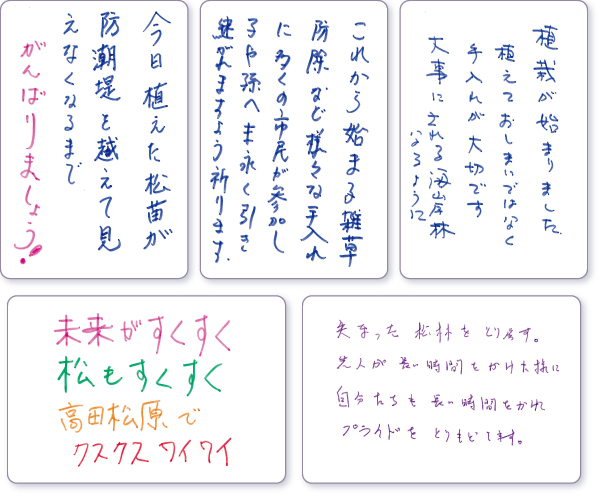 今日植えた松苗が
防潮堤を越えて見
えなくなるまで
がんばりましょう!
これから始まる雑草
防除など様々な手入れ
に多くの市民が参加し
子や孫へ末永く引き
継がれますよう祈ります。
植栽が始まりました。
植えておしまいではなく
手入れが大切です
大事にされる海岸林
なるように
未来がすくすく
松もすくすく
高田松原で
クスクス ワイワイ
失なった 松林を とり戻す。
先人が 長い時間をかけた様に
自分たちも 長い時間をかけ
プライドを とりもどします。